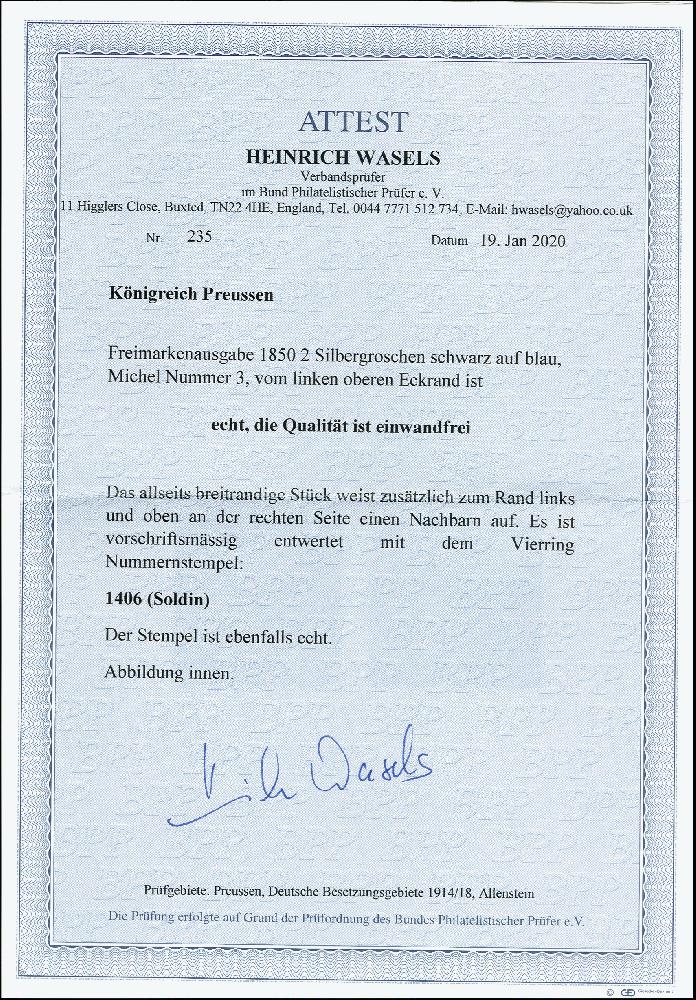 ATTEST
HEINRICH WASELS
Verbandsprüfer
im Bund Philatelistischer Prüfer e. V.
11 Higglers Close, Buxted, TN22 4HE, England, Tel. 0044 7771 512 734, E-Mail: hwasels@yahoo.co.uk
Nr. 235 Datum 19. Jan 2020
Königreich Preussen
Freimarkenausgabe 1850 2 Silbergroschen schwarz auf blau,
Michel Nummer 3, vom linken oberen Eckrand ist
echt, die Qualität ist einwandfrei
Das allseits breitrandige Stück weist zusätzlich zum Rand links
und oben an der rechten Seite einen Nachbarn auf. Es ist
vorschriftsmässig entwertet mit dem Vierring
Nummernstempel:
1406 (Soldin)
Der Stempel ist ebenfalls echt.
Abbildung innen.
Wasels
Prüfgebiete: Preussen, Deutsche Besetzungsgebiete 1914/18, Allenstein
Die Prüfung erfolgte auf Grund der Prüfordnung des Bundes Philatelistischer Prüfer e.V.